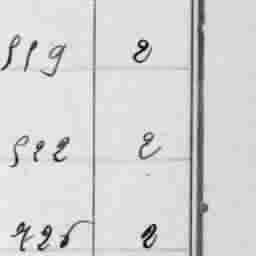 519 2
522 2
725 2